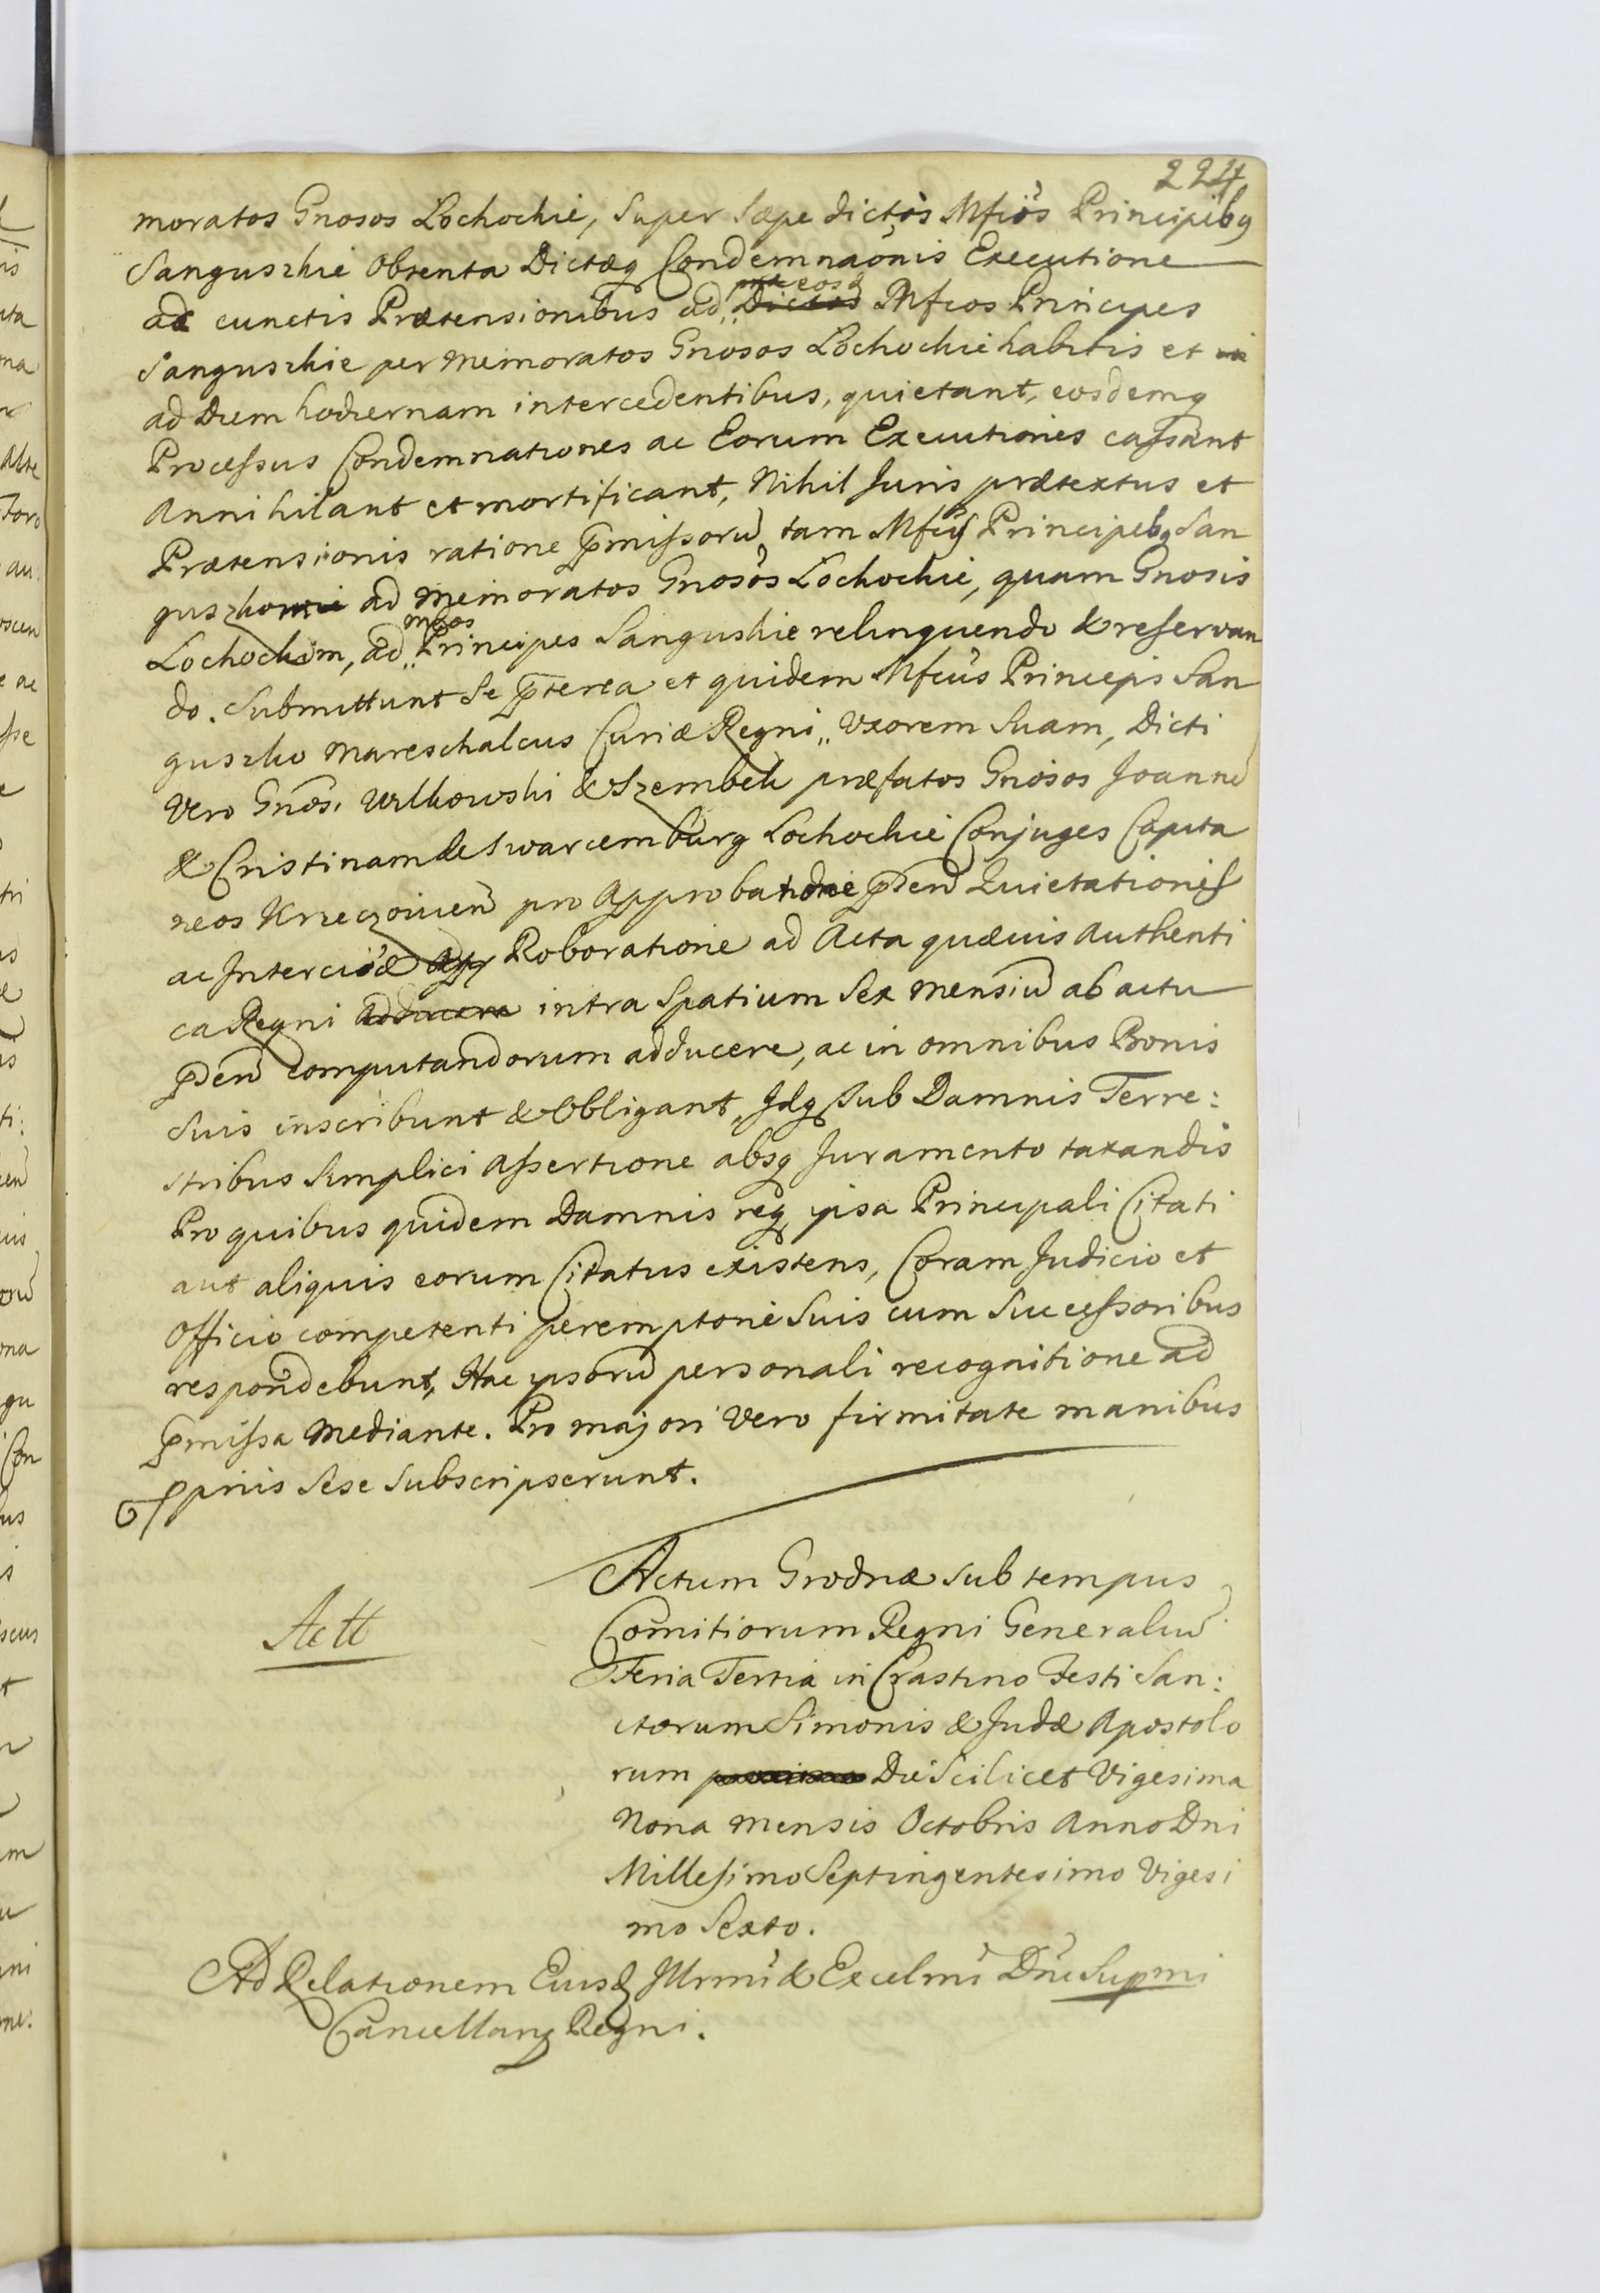 224
moratos Gnosos Lochockie, Super Sæpe dictos Mficos Principibq
Sanguszkie obtenta Dictæq Condemnaonis Executione
ac cunctis Prætensionibus ad eosd Mfcos Principes
Sanguszkie per memoratos Gnosos Lochockie habitis et
ad Diem hodiernam intercedentibus, quietant, eosdemq
Processus Condemnationes ac Eorum Executiones cassant
Annihilant et mortificant, Nihil Juris prætextus et
Prætensionis ratione pmissorū tam Mfcis Principibq San
guszkom ad memoratos Gnosos Lochockie, quam Gnosis
Lochockim, ad mfcos Principes Sanguskie relinquendo & reservan
do. Submittunt Se pterea et quidem Mfcus Princeps San
guszko Mareschalcus Curiæ Regni Uxorem Suam, Dicti
Vero Gnosi Wilkowski & Szembek præfatos Gnosos Joannē
& Cristinam de Swarcemburg Lochockie Conjuges Capita
neos Krzeczovien pro Approbatione pden Quietationis
ac Intercisæ Roboratione ad Acta quævis Authenti
ca Regni intra Spatium Sex mensiū ab actu
pden computandorum adducere, ac in omnibus Bonis
Suis inscribunt & Obligant, Idq Sub Damnis Terre:
stribus Simplici Assertione absq Juramento taxandis
Pro quibus quidem Damnis req ipsa Principali Citati
aut aliquis eorum Citatus existens, Coram Judicio et
Officio competenti peremptorie Suis cum Successoribus
respondebunt, Hac ipsorū personali recognitione ad
pmissa Mediante. Pro majori Vero firmitate manibus
ppriis Sese Subscripserunt.
Actum Grodnæ sub tempus
Comitiorum Regni Generaliū
Feria Tertia in Crastino Festi San:
ctorum Simonis & Judæ Apostolo
rum Die Scilicet Vigesima
Nona mensis Octobris Anno Dni
Millesimo Septingentesimo Vigesi
mo Sexto.
Ad Relationem Eiusd Illrmi & Excelmi Dni Supmi
Cancellarij Regni.